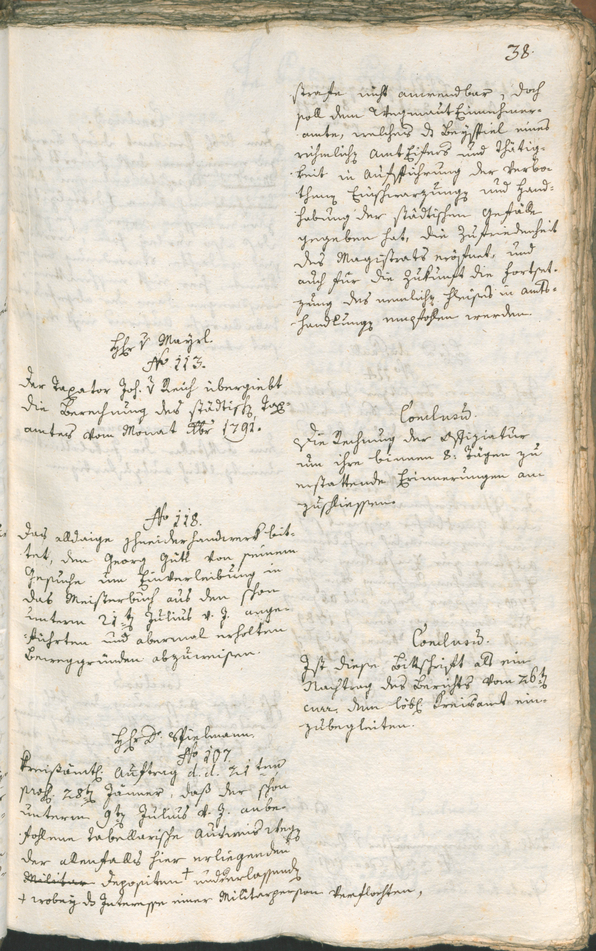 38.
strafe nicht anwendbar, doch
soll dem Wegmaut Einnehmer-
amte, welches ds Beyspiel eines
rühmlichen AmtsEifers und Thätig-
keit in Aufführung der verbo-
thenen Einschwarzungen und Hand-
habung der städtischen Gefälle
gegeben hat, die Zufriedenheit
des Magistrats eröfnet, und
auch für die Zukunft die Fortset-
zung des nemlichen Fleises in Amts-
handlungen empfohlen werden.
Hr v Mayrl.
No 113.
Der Taxator Joh. v Reich übergiebt
die Berechnung des städtischen Tax-
amtes vom Monat Xbr 1791.
Conclusum.
Die Rechnung der Offizietur
um ihre binnen 8. Tägen zu
erstattende Erinnerungen an-
zuschliessen.
No 118.
Das alldaige Schneiderhandwerk bit-
tet, den Georg Gütl von seinem
Gesuche um Einverleibung in
das Meisterbuch aus den schon
unterm 21ten Julius v. J. ange-
führten und abermal erholten
Beweggründen abzuweisen.
Conclusum.
Ist diese Bittschrift als ein
Nachtrag des Berichts vom 26ten
curr. dem löbl. Kreisamt ein-
zubegleiten.
Hr Dr. Spielmann.
No 107
Kreisämtl. Auftrag d. d. 21ten
präs. 28ten Jänner, daß der schon
unterm 9ten Julius v. J. anbe-
fohlene tabellarische Ausweis wegen
der allenfalls hier erliegenden
Militar Depositen + und Verlassensch
+ wobey ds Interesse einer Militarperson verflochten,